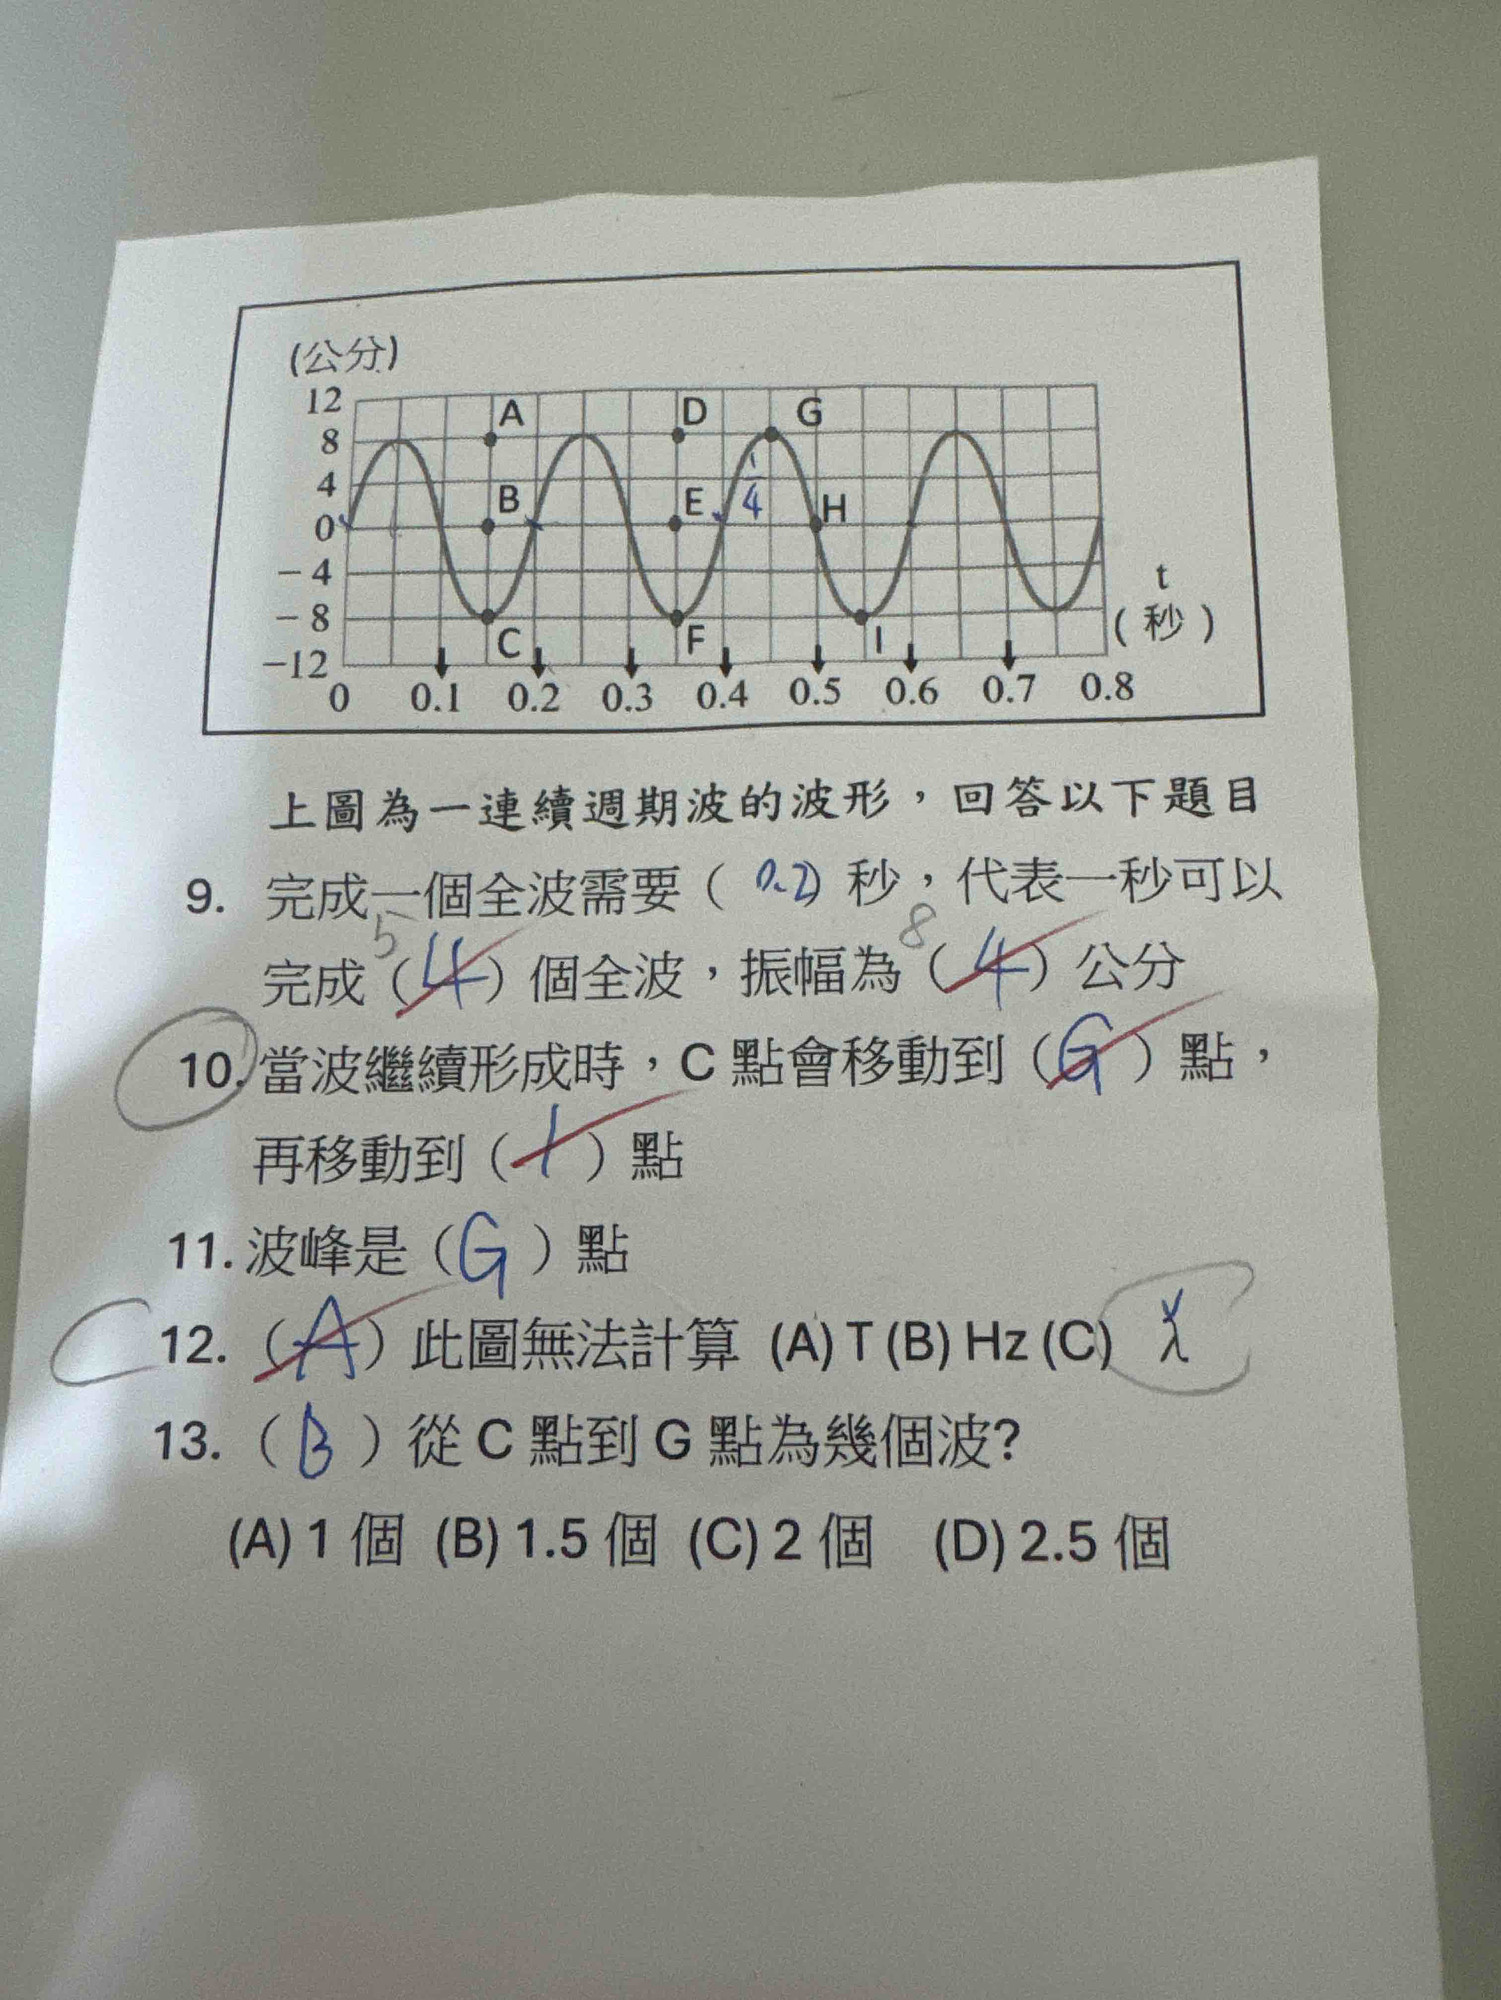 (公分)
12
8
4
0
－4
－8
－12
A
B
C
D
E
F
G
H
I
1
4
0 0.1 0.2 0.3 0.4 0.5 0.6 0.7 0.8
t
(秒)
上圖為一連續週期波的波形，回答以下題目
9. 完成一個全波需要（0.2）秒，代表一秒可以
5 8
完成（4）個全波，振幅為（4）公分
10. 當波繼續形成時，C 點會移動到（G）點，
再移動到（I）點
11. 波峰是（G）點
12.（A）此圖無法計算 (A) T (B) Hz (C) λ
13.（B）從 C 點到 G 點為幾個波?
(A) 1 個 (B) 1.5 個 (C) 2 個 (D) 2.5 個